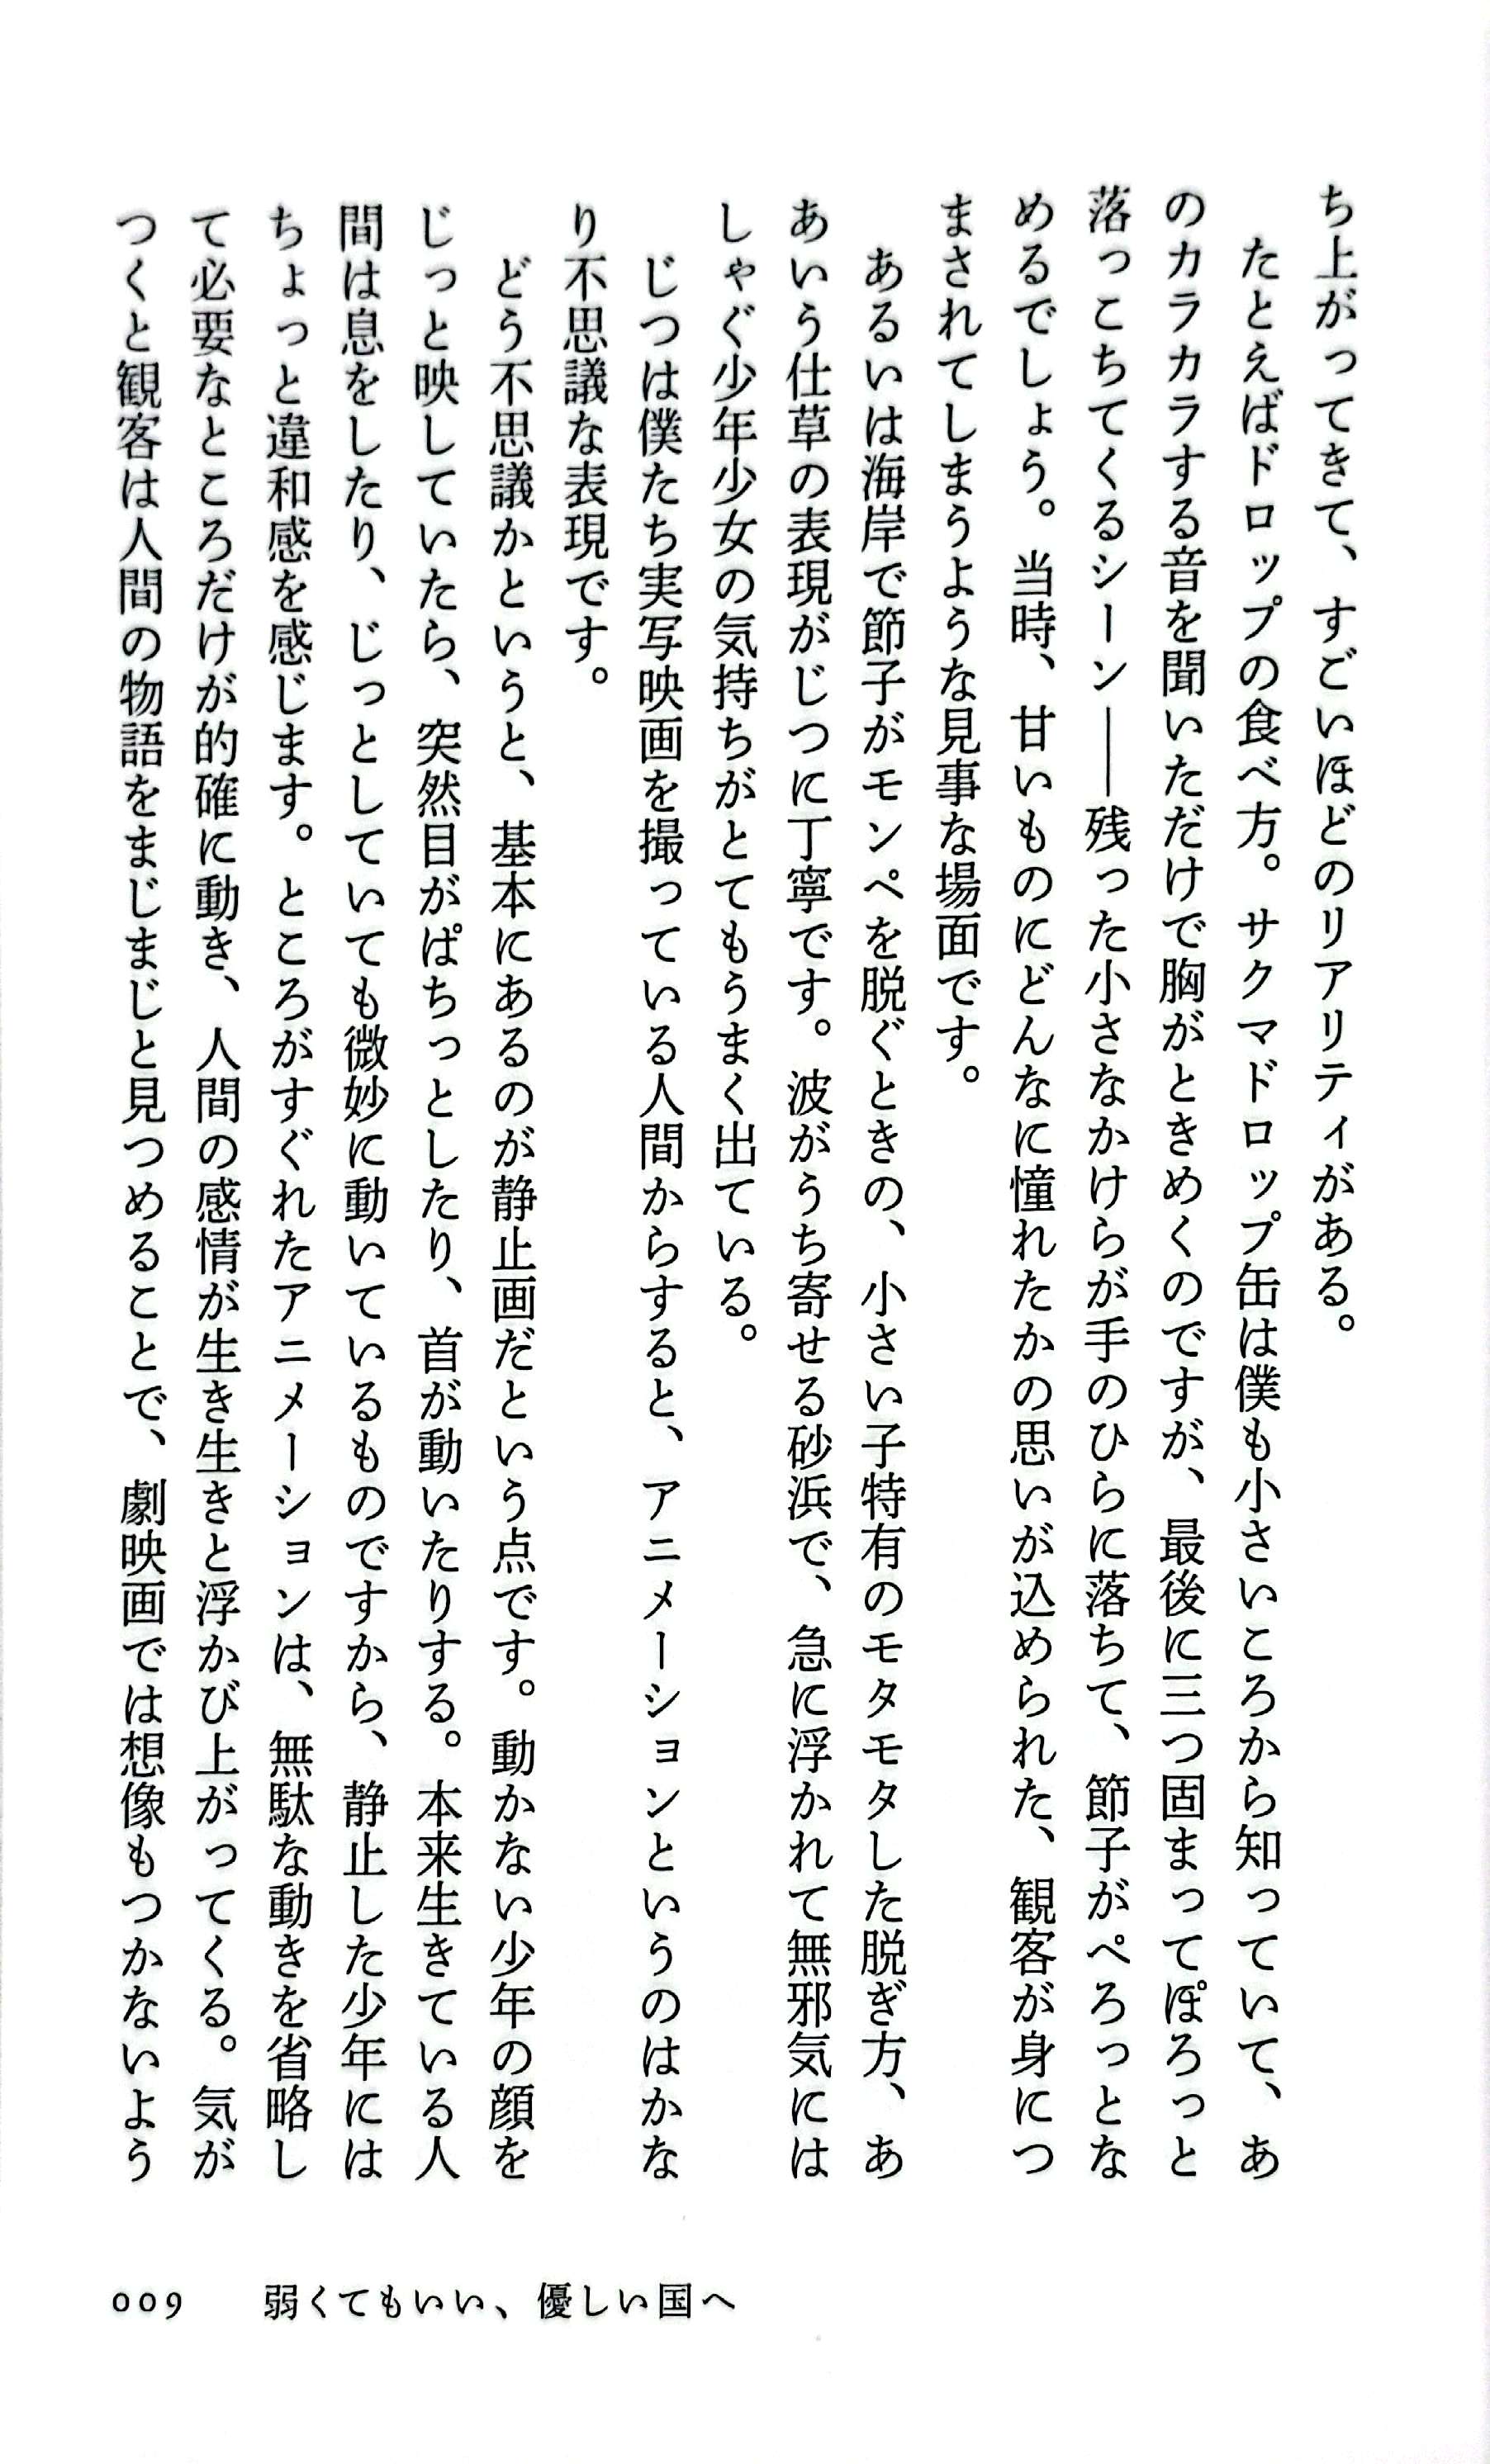 ち上がってきて、すごいほどのリアリティがある。
　たとえばドロップの食べ方。サクマドロップ缶は僕も小さいころから知っていて、あ
のカラカラする音を聞いただけで胸がときめくのですが、最後に三つ固まってぽろっと
落っこちてくるシーン――残った小さなかけらが手のひらに落ちて、節子がぺろっとな
めるでしょう。当時、甘いものにどんなに憧れたかの思いが込められた、観客が身につ
まされてしまうような見事な場面です。
　あるいは海岸で節子がモンペを脱ぐときの、小さい子特有のモタモタした脱ぎ方、あ
あいう仕草の表現がじつに丁寧です。波がうち寄せる砂浜で、急に浮かれて無邪気には
しゃぐ少年少女の気持ちがとてもうまく出ている。
　じつは僕たち実写映画を撮っている人間からすると、アニメーションというのはかな
り不思議な表現です。
　どう不思議かというと、基本にあるのが静止画だという点です。動かない少年の顔を
じっと映していたら、突然目がぱちっとしたり、首が動いたりする。本来生きている人
間は息をしたり、じっとしていても微妙に動いているものですから、静止した少年には
ちょっと違和感を感じます。ところがすぐれたアニメーションは、無駄な動きを省略し
て必要なところだけが的確に動き、人間の感情が生き生きと浮かび上がってくる。気が
つくと観客は人間の物語をまじまじと見つめることで、劇映画では想像もつかないよう
009　弱くてもいい、優しい国へ